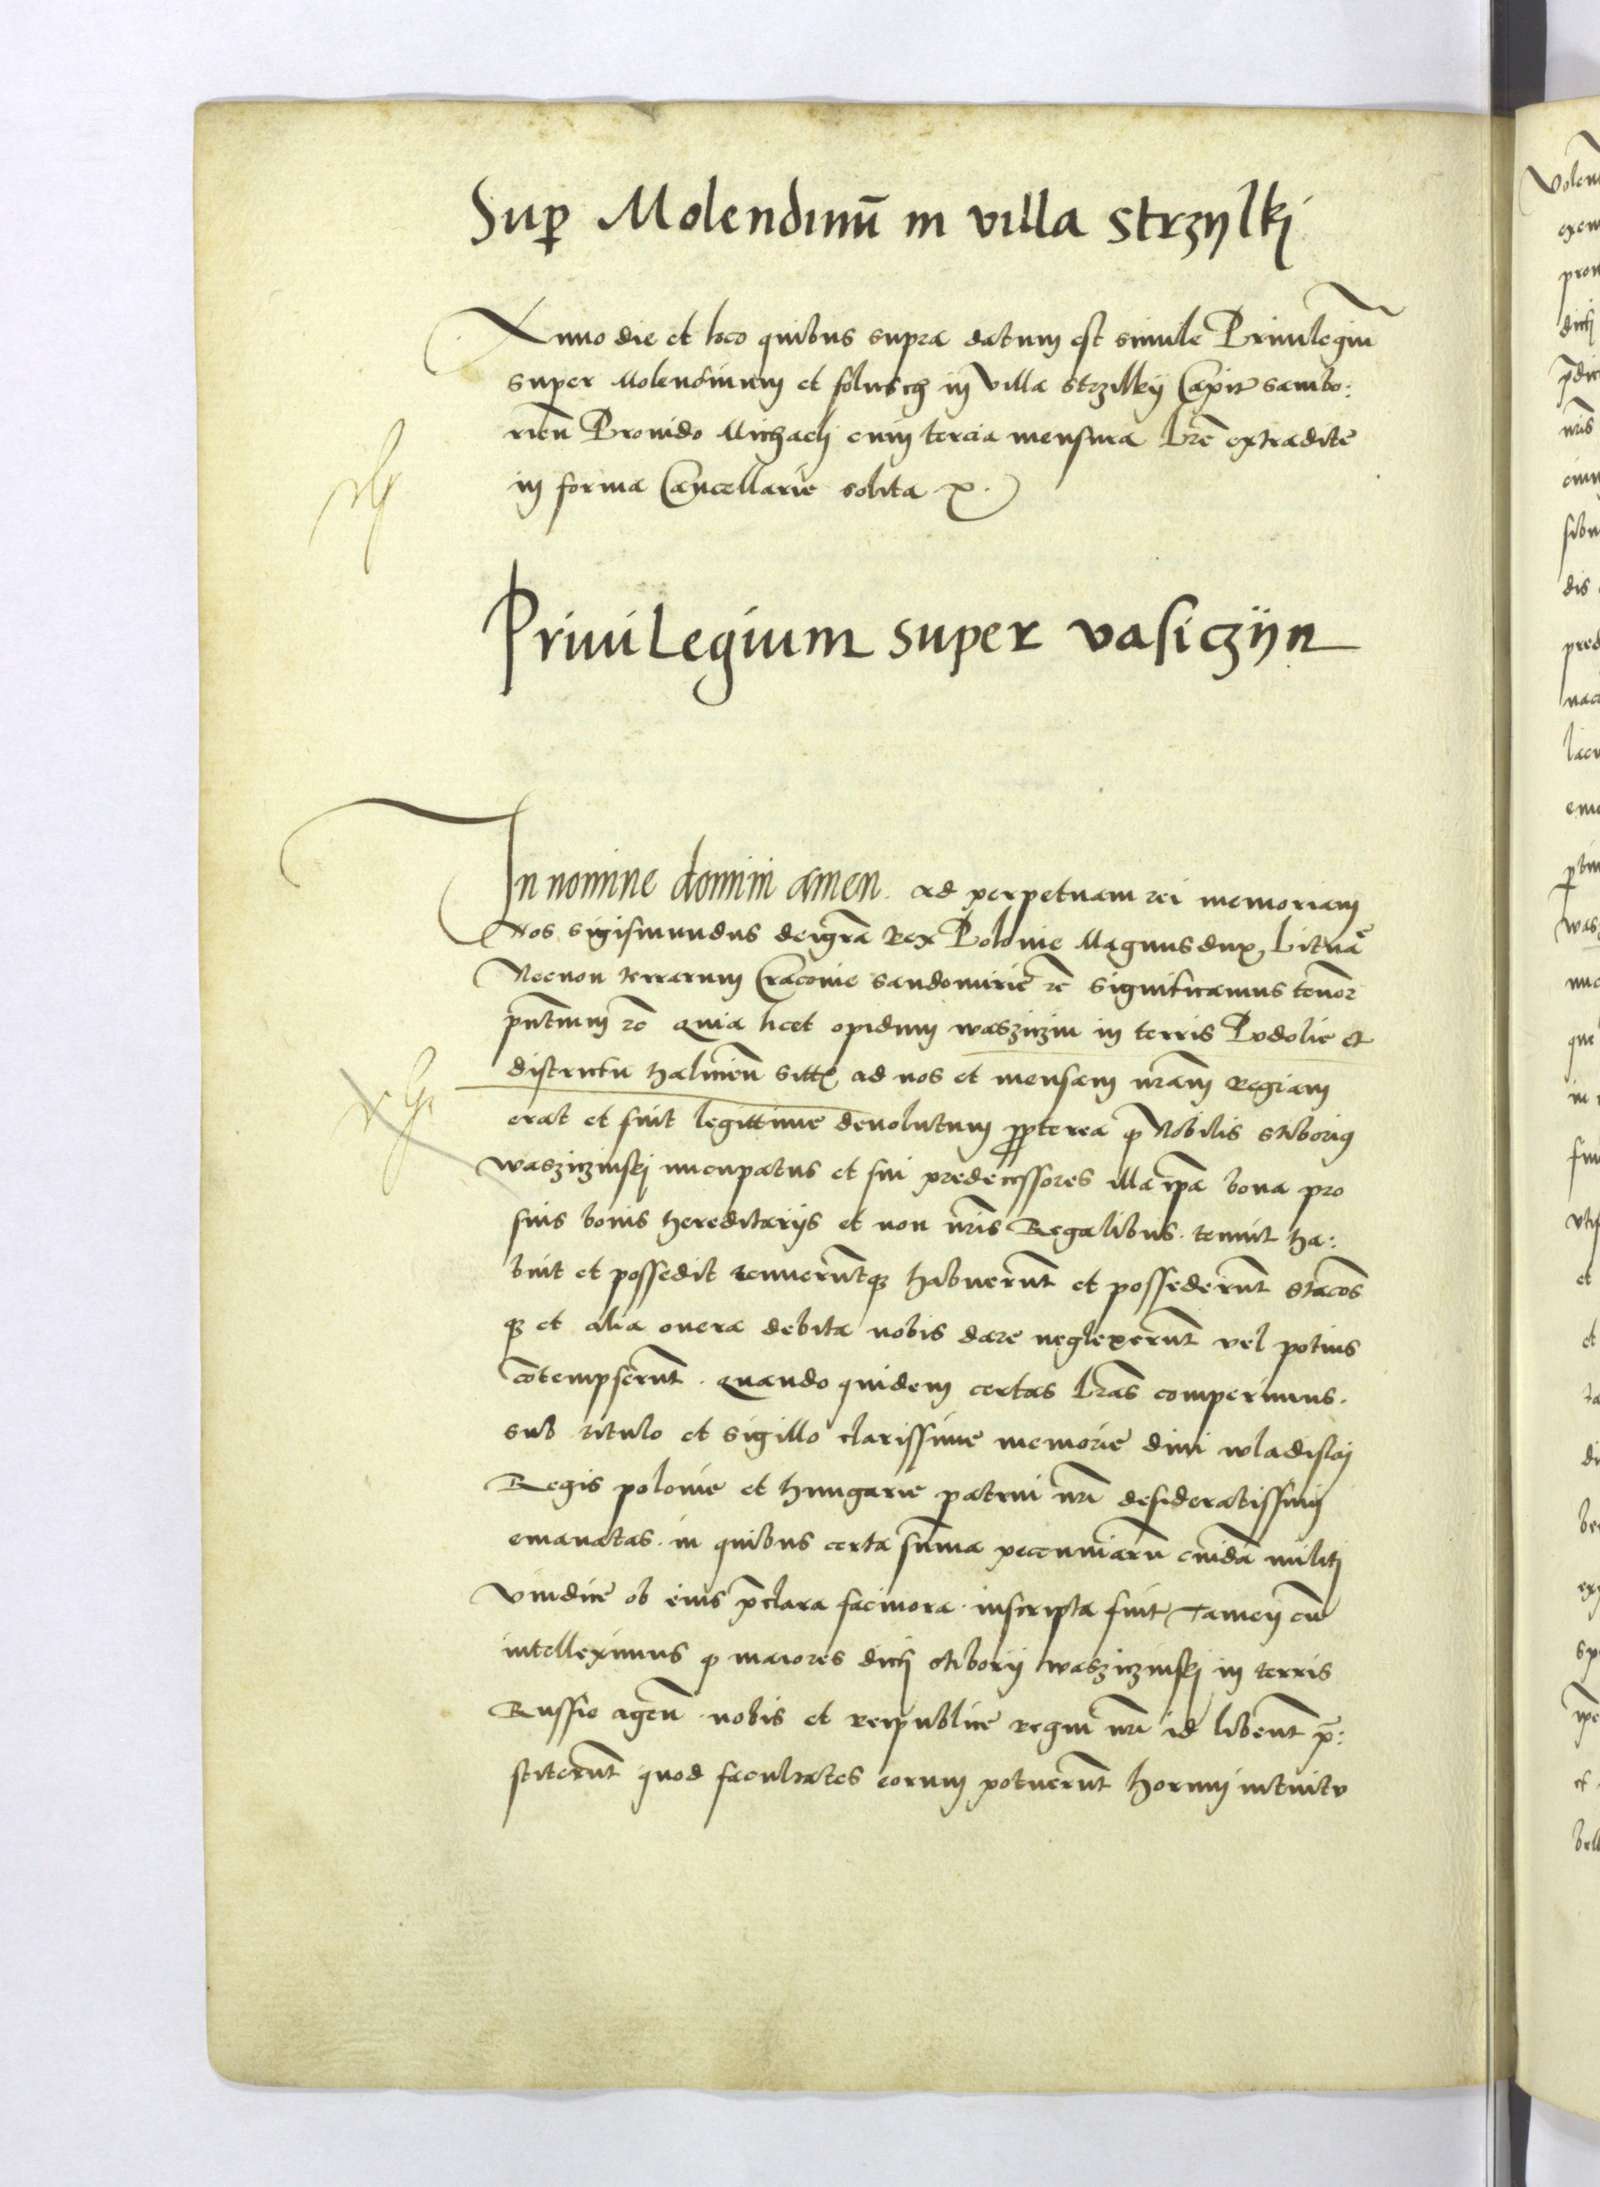 Sup Molendinū in villa strzylkj
Anno die et loco quibus supra datum est simile Priuilegiū
super Molendinum et soltisc3 in Villa strzilkij Capit sambo:
rien̄ Prouido Michaeli cum tercia mensura Lr̄e extradite
in forma Cancellarie solita
Priuilegium super vasiczÿn
In nomine domini amen. ad perpetuam rei memoriam
Nos Sigismundus dei gr̄a Rex Polonie Magnus dux Lituā
Necnon terrarum Cracouie sandomirie r̄c significamus tenor
pn̄tium r̄c Quia licet opidum wasziczin in terris Podolie et
districtu halicien̄ sitt ad nos et mensam nr̄am Regiam
erat et fuit legittime deuolutum propterea q Nobilis stiborius
waszicinskj nuncupatus et sui predecessores illa ip̄a bona pro
suis bonis hereditarijs et non nr̄is Regalibus. tenuit ha:
buit et possedit tenuerūtq habuerūt et possederūt stacōs
q et alia onera debita nobis dare neglexerūt vel potius
cōtempserūt. quando quidem certas lr̄as comperimus.
sub titulo et sigillo clarissime memorie diui wladislaj
Regis polonie et hungarie patrui nr̄i desideratissimj
emanatas. in quibus certa sūma pecuniarū cuidā militj
ob eius p̄clara facinora. inscripta fuit Tamen cū
intelleximus q maiores dicti stiborij waszicinskj in terris
Russie agen̄. nobis et reipublice regni nr̄i id libent̄ p̄:
stiterūt quod facultates eorum potuerūt horum intuitu